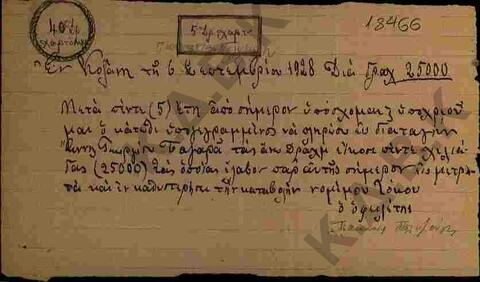 40 Λε
χαρτοσ
5 Δραχμαι
18466
Ἐν Κοζάνῃ τῇ 6 Σεπτεμβρίου 1928 Διὰ δραχ 25000
Μετὰ πέντε (5) ἔτη ἀπὸ σήμερον ὑπόσχομαι & ὑποχρεοῦ
μαι ὁ κάτωθι ὑπογεγραμμένος νὰ πληρώσω εἰς διαταγὴν
Γεωργίου τὰς ἄνω δραχμ εἴκοσι πέντε χιλιά
δας (25000) τὰς ὁποίας ἔλαβον παρ αὐτῆς σήμερον εἰς μετρη
τὰ καὶ ἐν καθυστερήσει τῆς καταβολῆς νομίμου τόκου
ὁ ὀφειλέτης